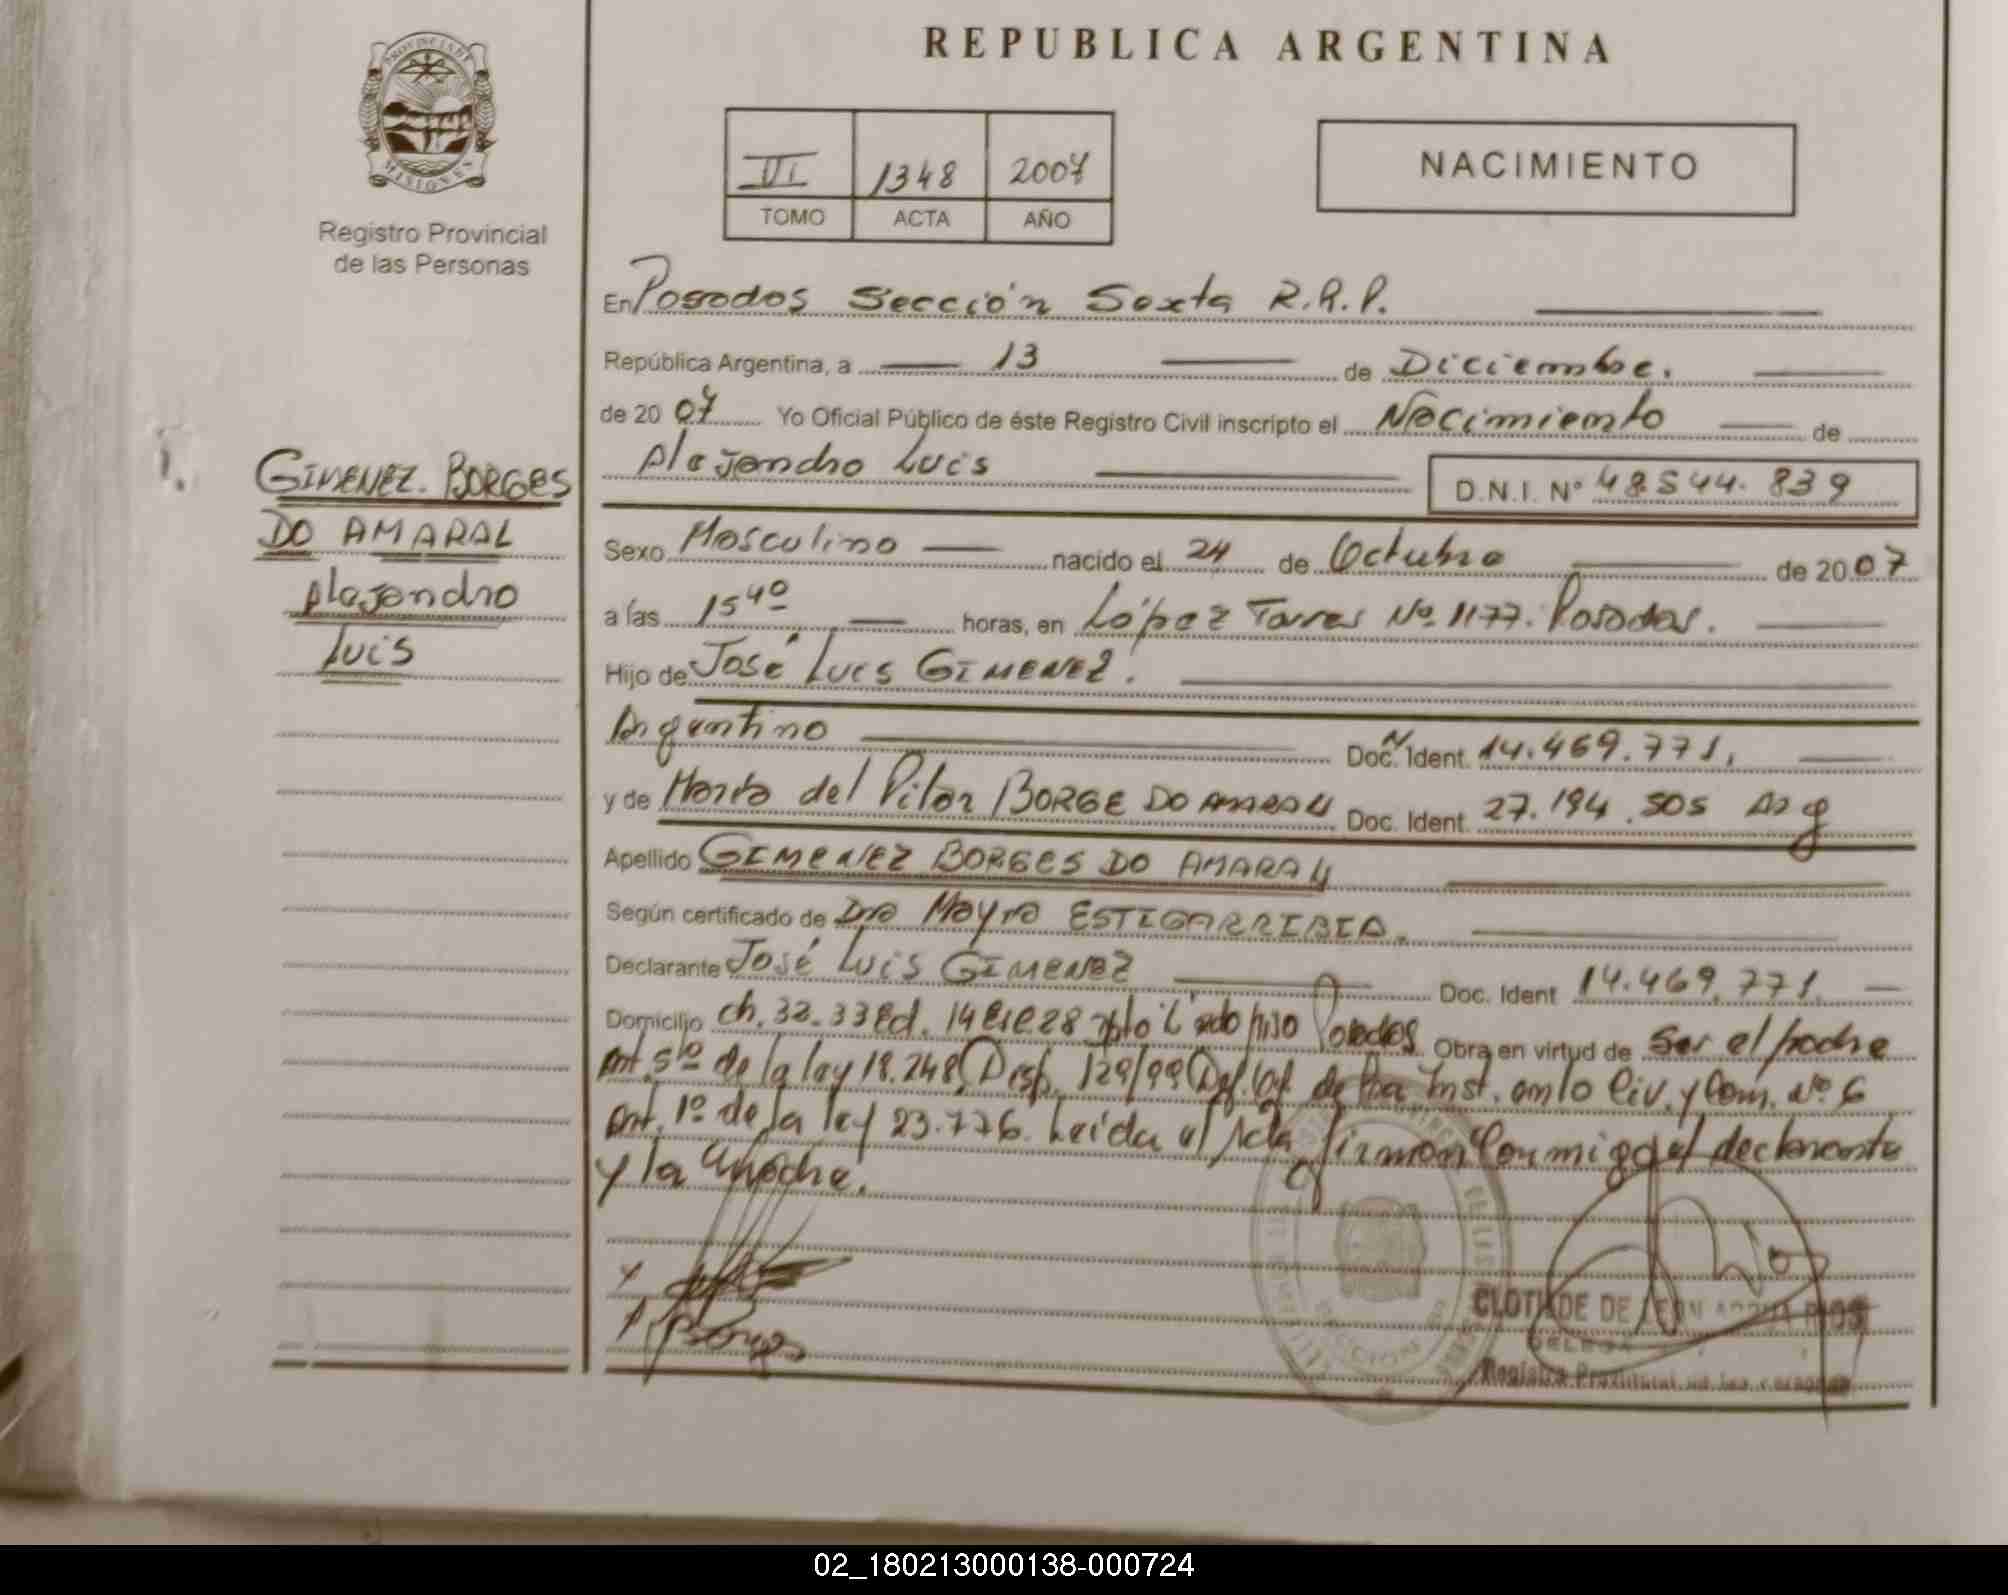 REPUBLICA ARGENTINA
PROVINCIA DE
MISIONES
Registro Provincial
de las Personas
VI 1348 2007
TOMO ACTA AÑO
NACIMIENTO
En Posadas Sección Sexta R.R.P.
República Argentina, a 13 de Diciembre.
de 2007 Yo Oficial Público de éste Registro Civil inscripto el Nacimiento de
Alejandro Luis
D.N.I. Nº 48.544.839
GIMENEZ. BORGES
DO AMARAL
Alejandro
Luis
Sexo Masculino nacido el 24 de Octubre de 2007
a las 15 40 horas, en López Torres Nº. 1177. Posadas.
Hijo de José Luis GIMENEZ.
Argentino Doc. Ident. 14.469.771,
y de Marta del Pilar BORGE DO AMARAL Doc. Ident. 27.194.505 Arg
Apellido GIMENEZ BORGES DO AMARAL
Según certificado de Dra Mayra ESTIGARRIBIA.
Declarante José Luis GIMENEZ Doc. Ident 14.469.771.
Domicilio ch. 32.33 Ed. 14 piso Posadas Obra en virtud de Ser el padre
Art. 5to de la ley 18.248. Disp. 129/99 Inst. en lo Civ. y Com. Nº 6
Art. 1º de la ley 23.776. Leida el Acta firman Conmigo el declarante
y la Madre.
Borges
CLOTILDE DE LEON RIOS
Registro Provincial de las Personas
02_180213000138-000724